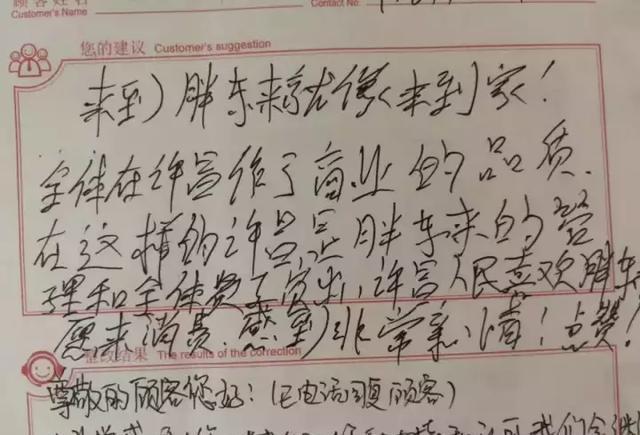 顾客姓名
Customer's Name
Contact No.
您的建议 Customer's suggestion
来到胖东来就像来到家!
全体在许昌作了商业的品质.
在这样的许昌是胖东来的管
理和全体 许昌人民喜欢胖东
愿来消费.感到非常亲情!点赞!
整改结果 The results of the correction
尊敬的顾客您好:(已电话回复顾客)